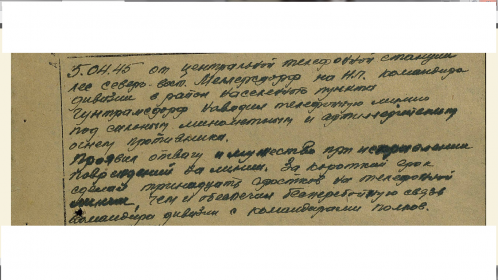 5.04.45 от центральной телефонной станции
лес северо-вост. Меллерсдорф на НП. командира
дивизии в район населенного пункта
Гунтрамсдорф наводил телефонную линию
под сильным минометным и артиллерийским
огнем противника.
Проявил отвагу и мужество при исправлении
повреждений на линии. За короткий срок
сделал тринадцать сростков на телефонной
линии, чем и обеспечил бесперебойную связь
командира дивизии с командирами полков.